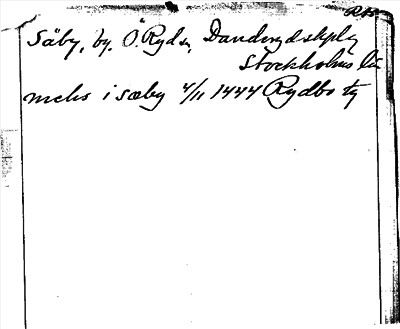 RAP
Säby, by. Ö. Ryd s., Danderyds skplg
Stockholms län
mels i sæby 4/11 1444 Rydbo tg